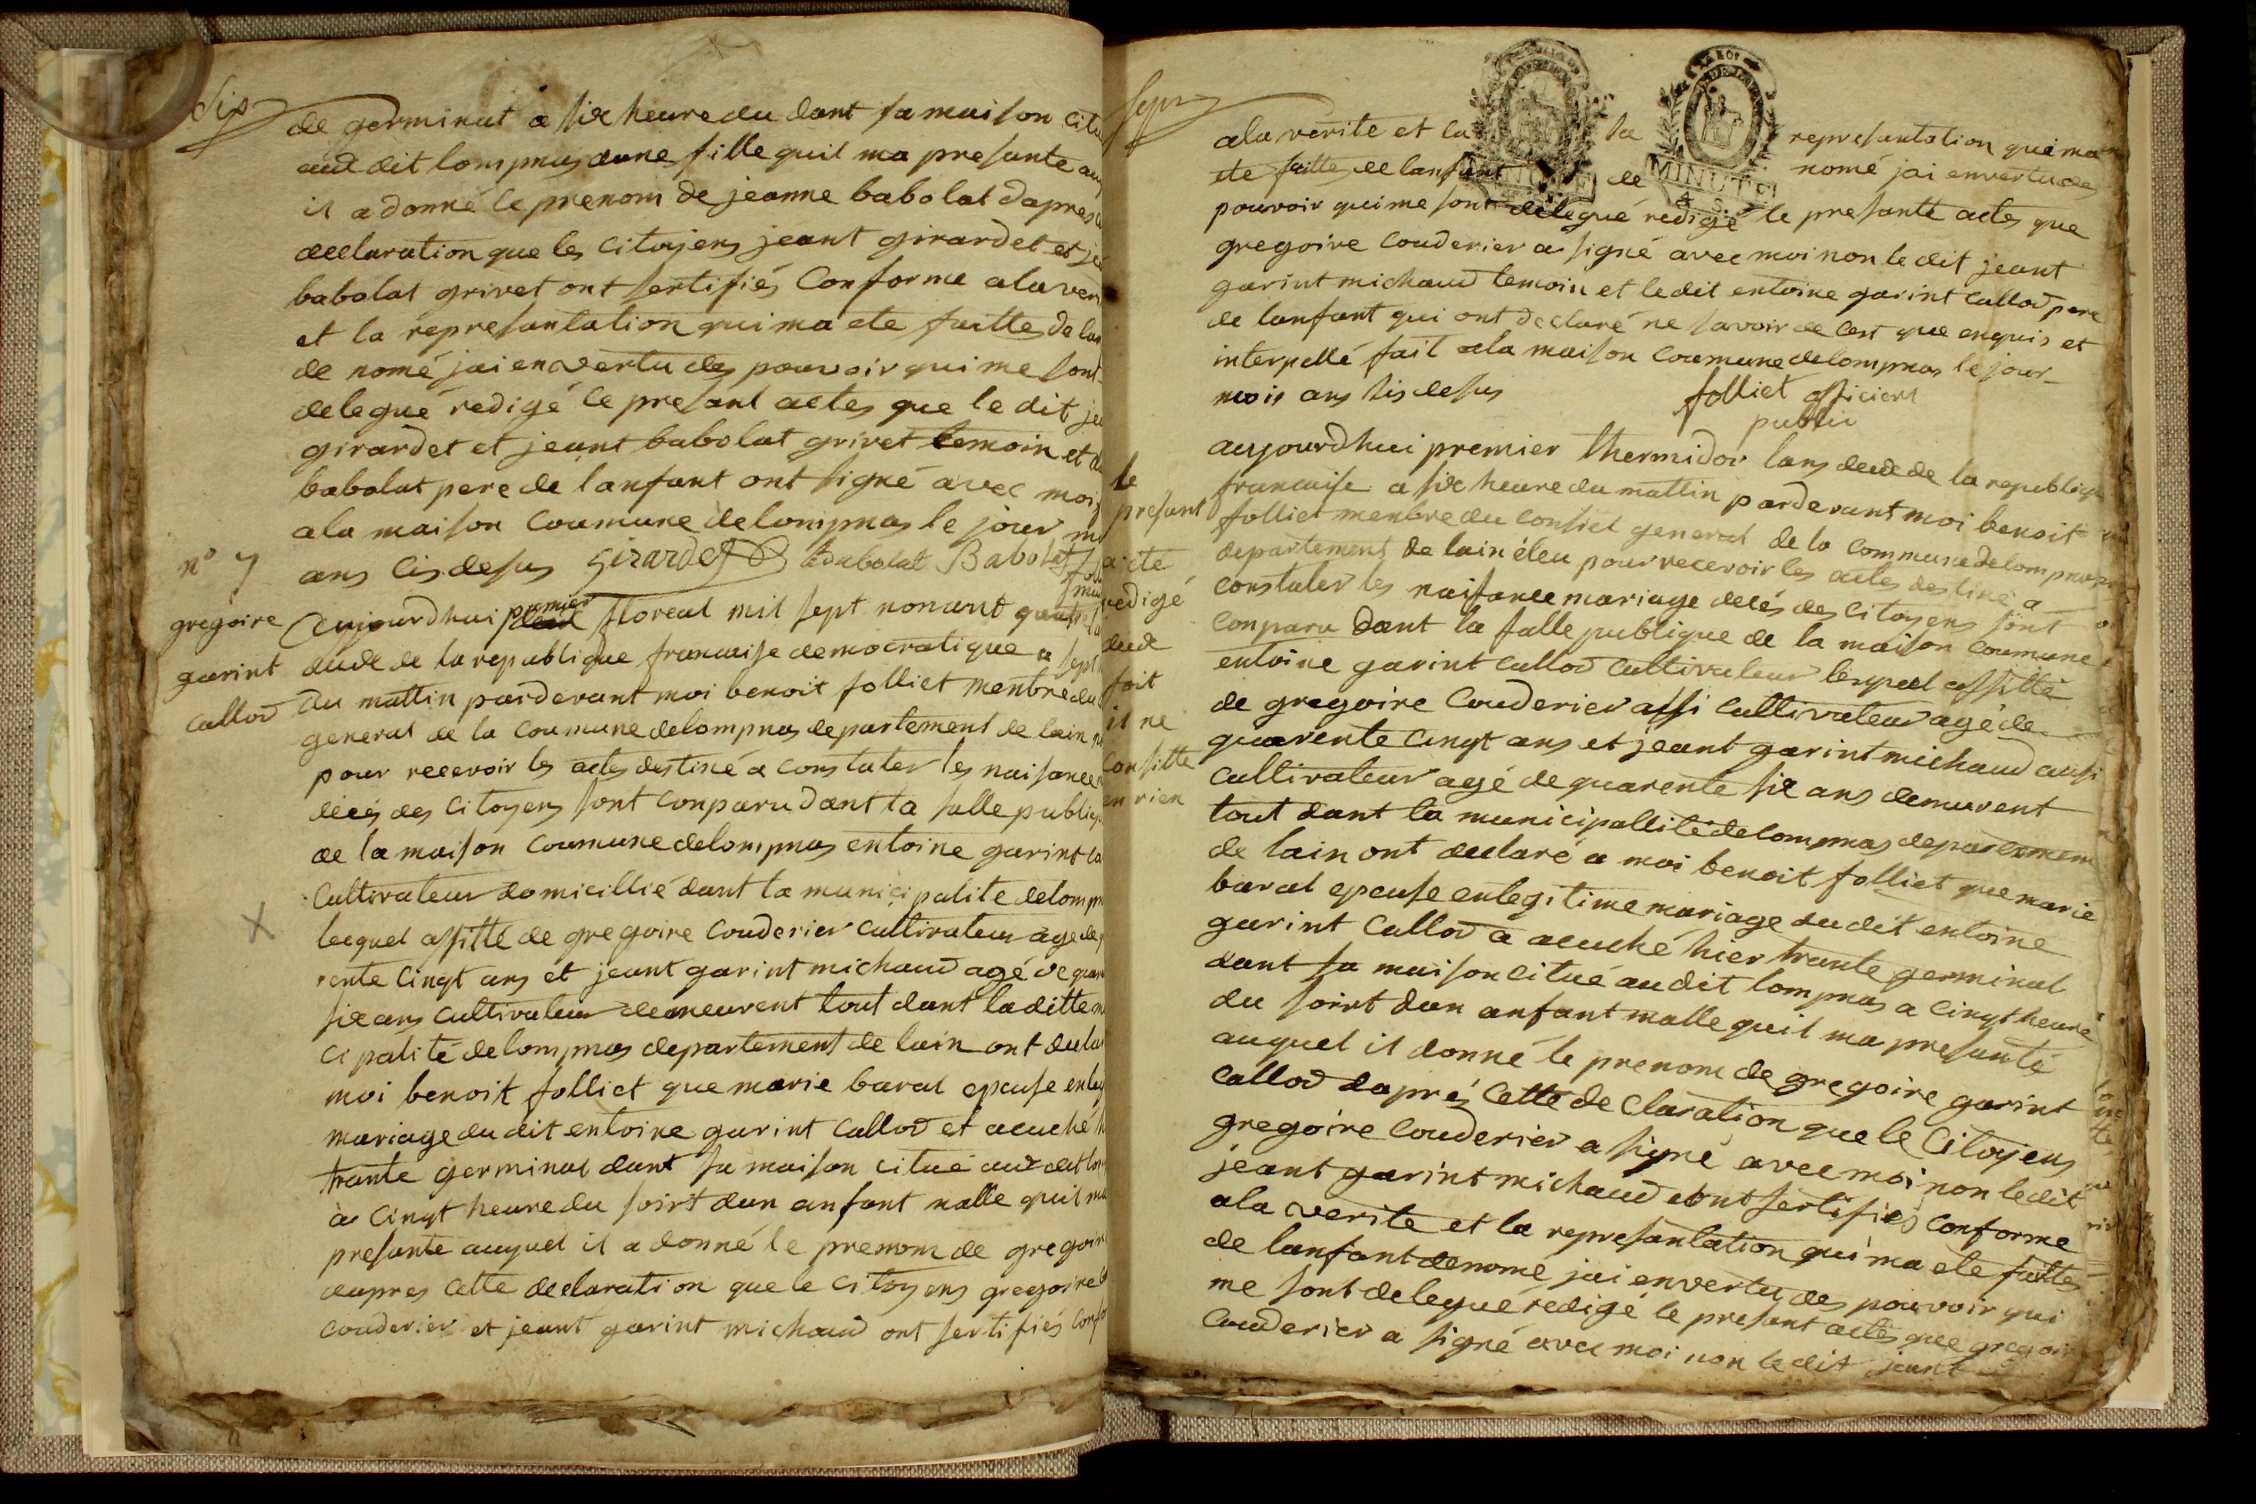 Six
de germinat a six heure du dant sa maison
aud dit lompnas dune fille quil ma presante
il a donné le prenom de jeanne babolat dapres
declaration que les citoyens jeant girardet et
babolat grivet ont sertifiés Conforme ala
et la represantation qui ma ete faittes de
de nomé jai en vertu des pouvoir qui me sont
delegué redigé le presant actes que le dit
girardet et jeant babolat grivet temoin et
babolat pere de lanfant ont signé avec moi
ala maison Coumune delompnas le jour
ans cis desus Girardet babolat Babolat
n° 7
gregoire
garint
callod
aujourdhui premier floreal mil sept nonant quatre
deude de la republique francaise democratique a sept
du mattin pardevant moi benoit folliet menbre du
general de la Coumune delompnas departement de lain
pour recevoir les actes destiné a constater les naisance
décés des Citoyens sont Conparu dant la salle publiq
de la maison Coumune delompnas entoine garint
Cultivateur domicillié dant la municipalite delomp
lequel assitté de gregoire Couderier Cultivateur age de
rente Cinqt ans et jeant garint michaud agé de
six ans Cultivateur demeurent tout dant laditte
cipalité delompnas departement de lain ont
moi benoit folliet que marie barat epouse
mariage du dit entoine garint Callod et acuché
trante germinal dant sa maison citué aud dit
à Cinqt heure du soirt dun anfant malle quil
presante auquel il a donné le prenom de
dapres Cette declaration que le Citoyens gregoire
Couderier et jeant garint michaud ont sertifiés
sept
ala verite et la represantation qui ma
ete faittes de lanfant de nomé jai envertu des
pouvoir qui me sont delegué redigé le presante actes que
gregoire Couderier a signé avec moi non le dit jeant
garint michaud temoin et le dit entoine garint Callod pere
de lanfant qui ont declaré ne savoir de cest que enquis et
interpellé fait ala maison Coumune delompnas le jour
mois ans sis desus folliet officiert
public
le
presant
acte
redigé
deude
foit
il ne
Consitte
en rien
aujourdhui premier thermidor lans deude de la republiq
francaise a six heure du mattin pardevant moi benoit
folliet menbre du Consiel general de la Commune delompnas
departement de lain éleu pour recevoir les actes destiné a
constater les naisance mariage decés des Citoyens sont
Conparu dant la salle publique de la maison Coumune
entoine garint Callod Cultivateur lequel assitté
de gregoire Couderier assi Cultivateur agé de
quarente Cinqt ans et jeant garint michaud aussi
Cultivateur agé de quarente six ans demurent
tout dant la municipallité delompnas departement
de lain ont declaré a moi benoit folliet que marie
barat epouse enlegitime mariage dudit entoine
garint Callod a acuché hier trante germinal
dant sa maison citué audit lompnas a Cinqt heure
du soirt dun anfant malle quil ma presanté
auquel il donné le prenom de gregoire garint
Callod daprés Cette declaration que le Citoyens
gregoire Couderier a signé avec moi non ledit
jeant garint michaud ont sertifiés Conforme
ala verite et la represantation qui ma ete faittes
de lanfant denomé jai envertu des pouvoir qui
me sont delegué redigé le presant actes que gregoire
Couderier a signé avec moi non le dit jeant